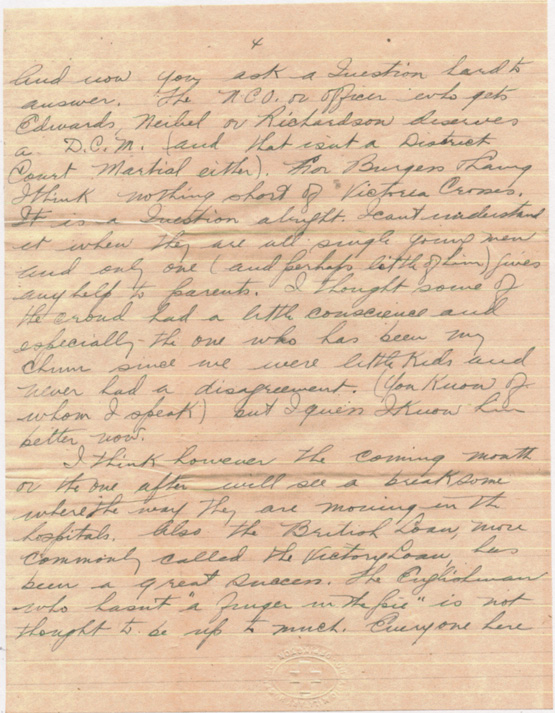 4
And now you ask a Question hard to
answer. The N.C.O. or officer who gets
Edwards, Neibel or Richardson deserves
a D.C.M. (and that isnt a District
Court Martial either). For Burgess &
I think nothing short of Victoria Crosses.
It is a Question alright. I cant understand
it when they are all single young men
and only one (and perhaps little of him) gives
any help to parents. I thought some of
the croud had a little conscience and
especially the one who has been my
chum since we were little kids and
never had a disagreement. (You Know of
whom I speak) but I guess I Know him
better now.
I think however the coming month
or the one after will see a break some
where the way they are moving in the
hospitals. Also the British Loan, more
commonly called the Victory Loan, has
been a great success. The Englishman
who hasn't "a finger in the pie" is not
thought to be up to much. Everyone here